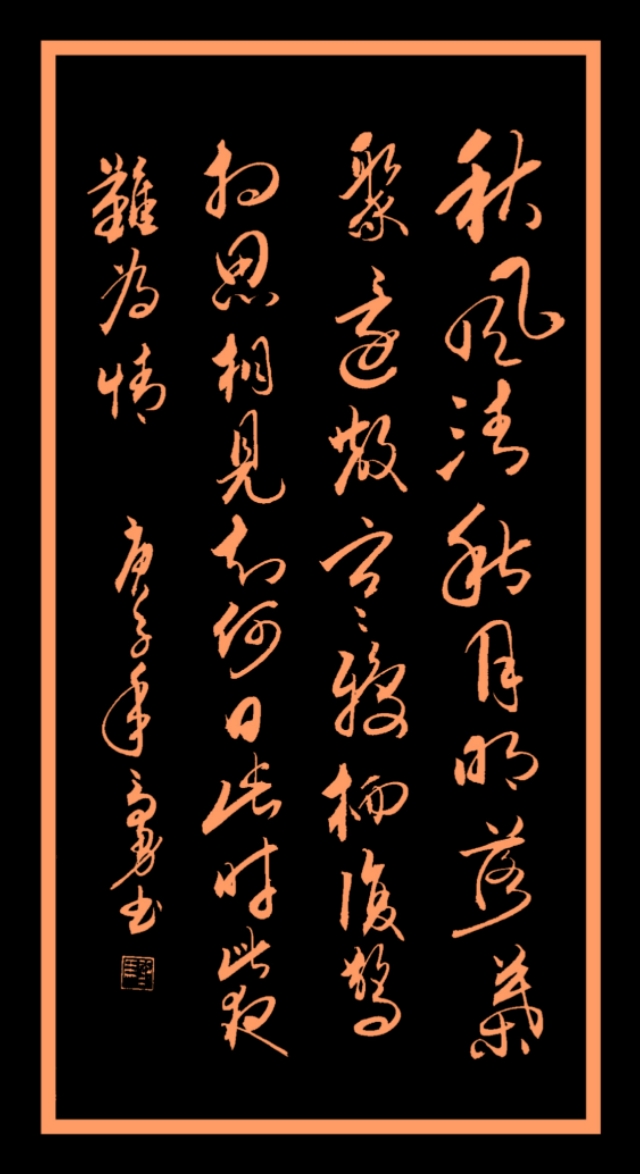 秋風清秋月明落葉
聚還散寒鴉栖復驚
相思相見知何日此時此夜
難為情 庚子年高勇书